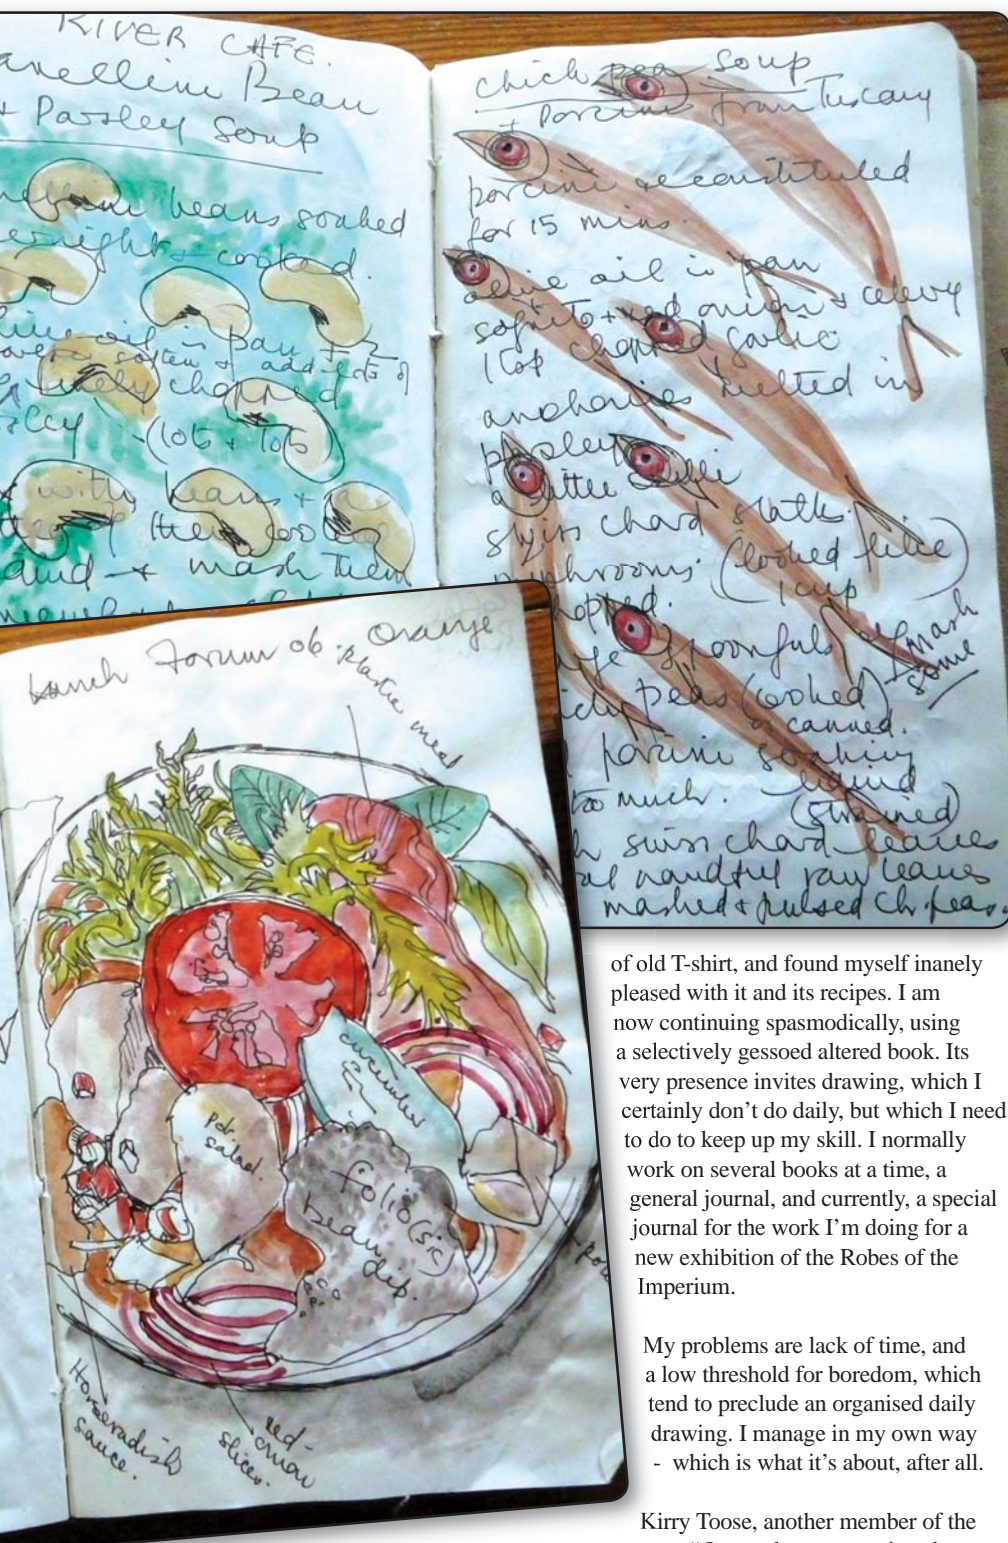 RIVER CAFE.
Bean
+ Parsley Soup
beans soaked
cooked.
oil in pan +
soften + add lots of
chopped
(lots + lots
with beans +
the cooking
and + mash them
chick pea soup
+ Porcini from Tuscany
porcini reconstituted
for 15 mins.
olive oil in pan
sofrito + red onion + celery
1 tsp chopped garlic
melted in
parsley
a little
swiss chard stalks.
mushrooms. (looked like
1 cup)
chopped.
spoonfuls (mash
some
peas (cooked)
or canned.
porcini soaking
too much. liquid
(strained)
swiss chard leaves
handful raw leaves
mashed + pulsed Ch. peas.
Lunch Forum 06. Orange
plastic meat
cucumber
pot.
salad.
folio (sic)
bean dip.
Horseradish
sauce.
red-
onion
slices.
of old T-shirt, and found myself inanely
pleased with it and its recipes. I am
now continuing spasmodically, using
a selectively gessoed altered book. Its
very presence invites drawing, which I
certainly don't do daily, but which I need
to do to keep up my skill. I normally
work on several books at a time, a
general journal, and currently, a special
journal for the work I'm doing for a
new exhibition of the Robes of the
Imperium.
My problems are lack of time, and
a low threshold for boredom, which
tend to preclude an organised daily
drawing. I manage in my own way
- which is what it's about, after all.
Kirry Toose, another member of the